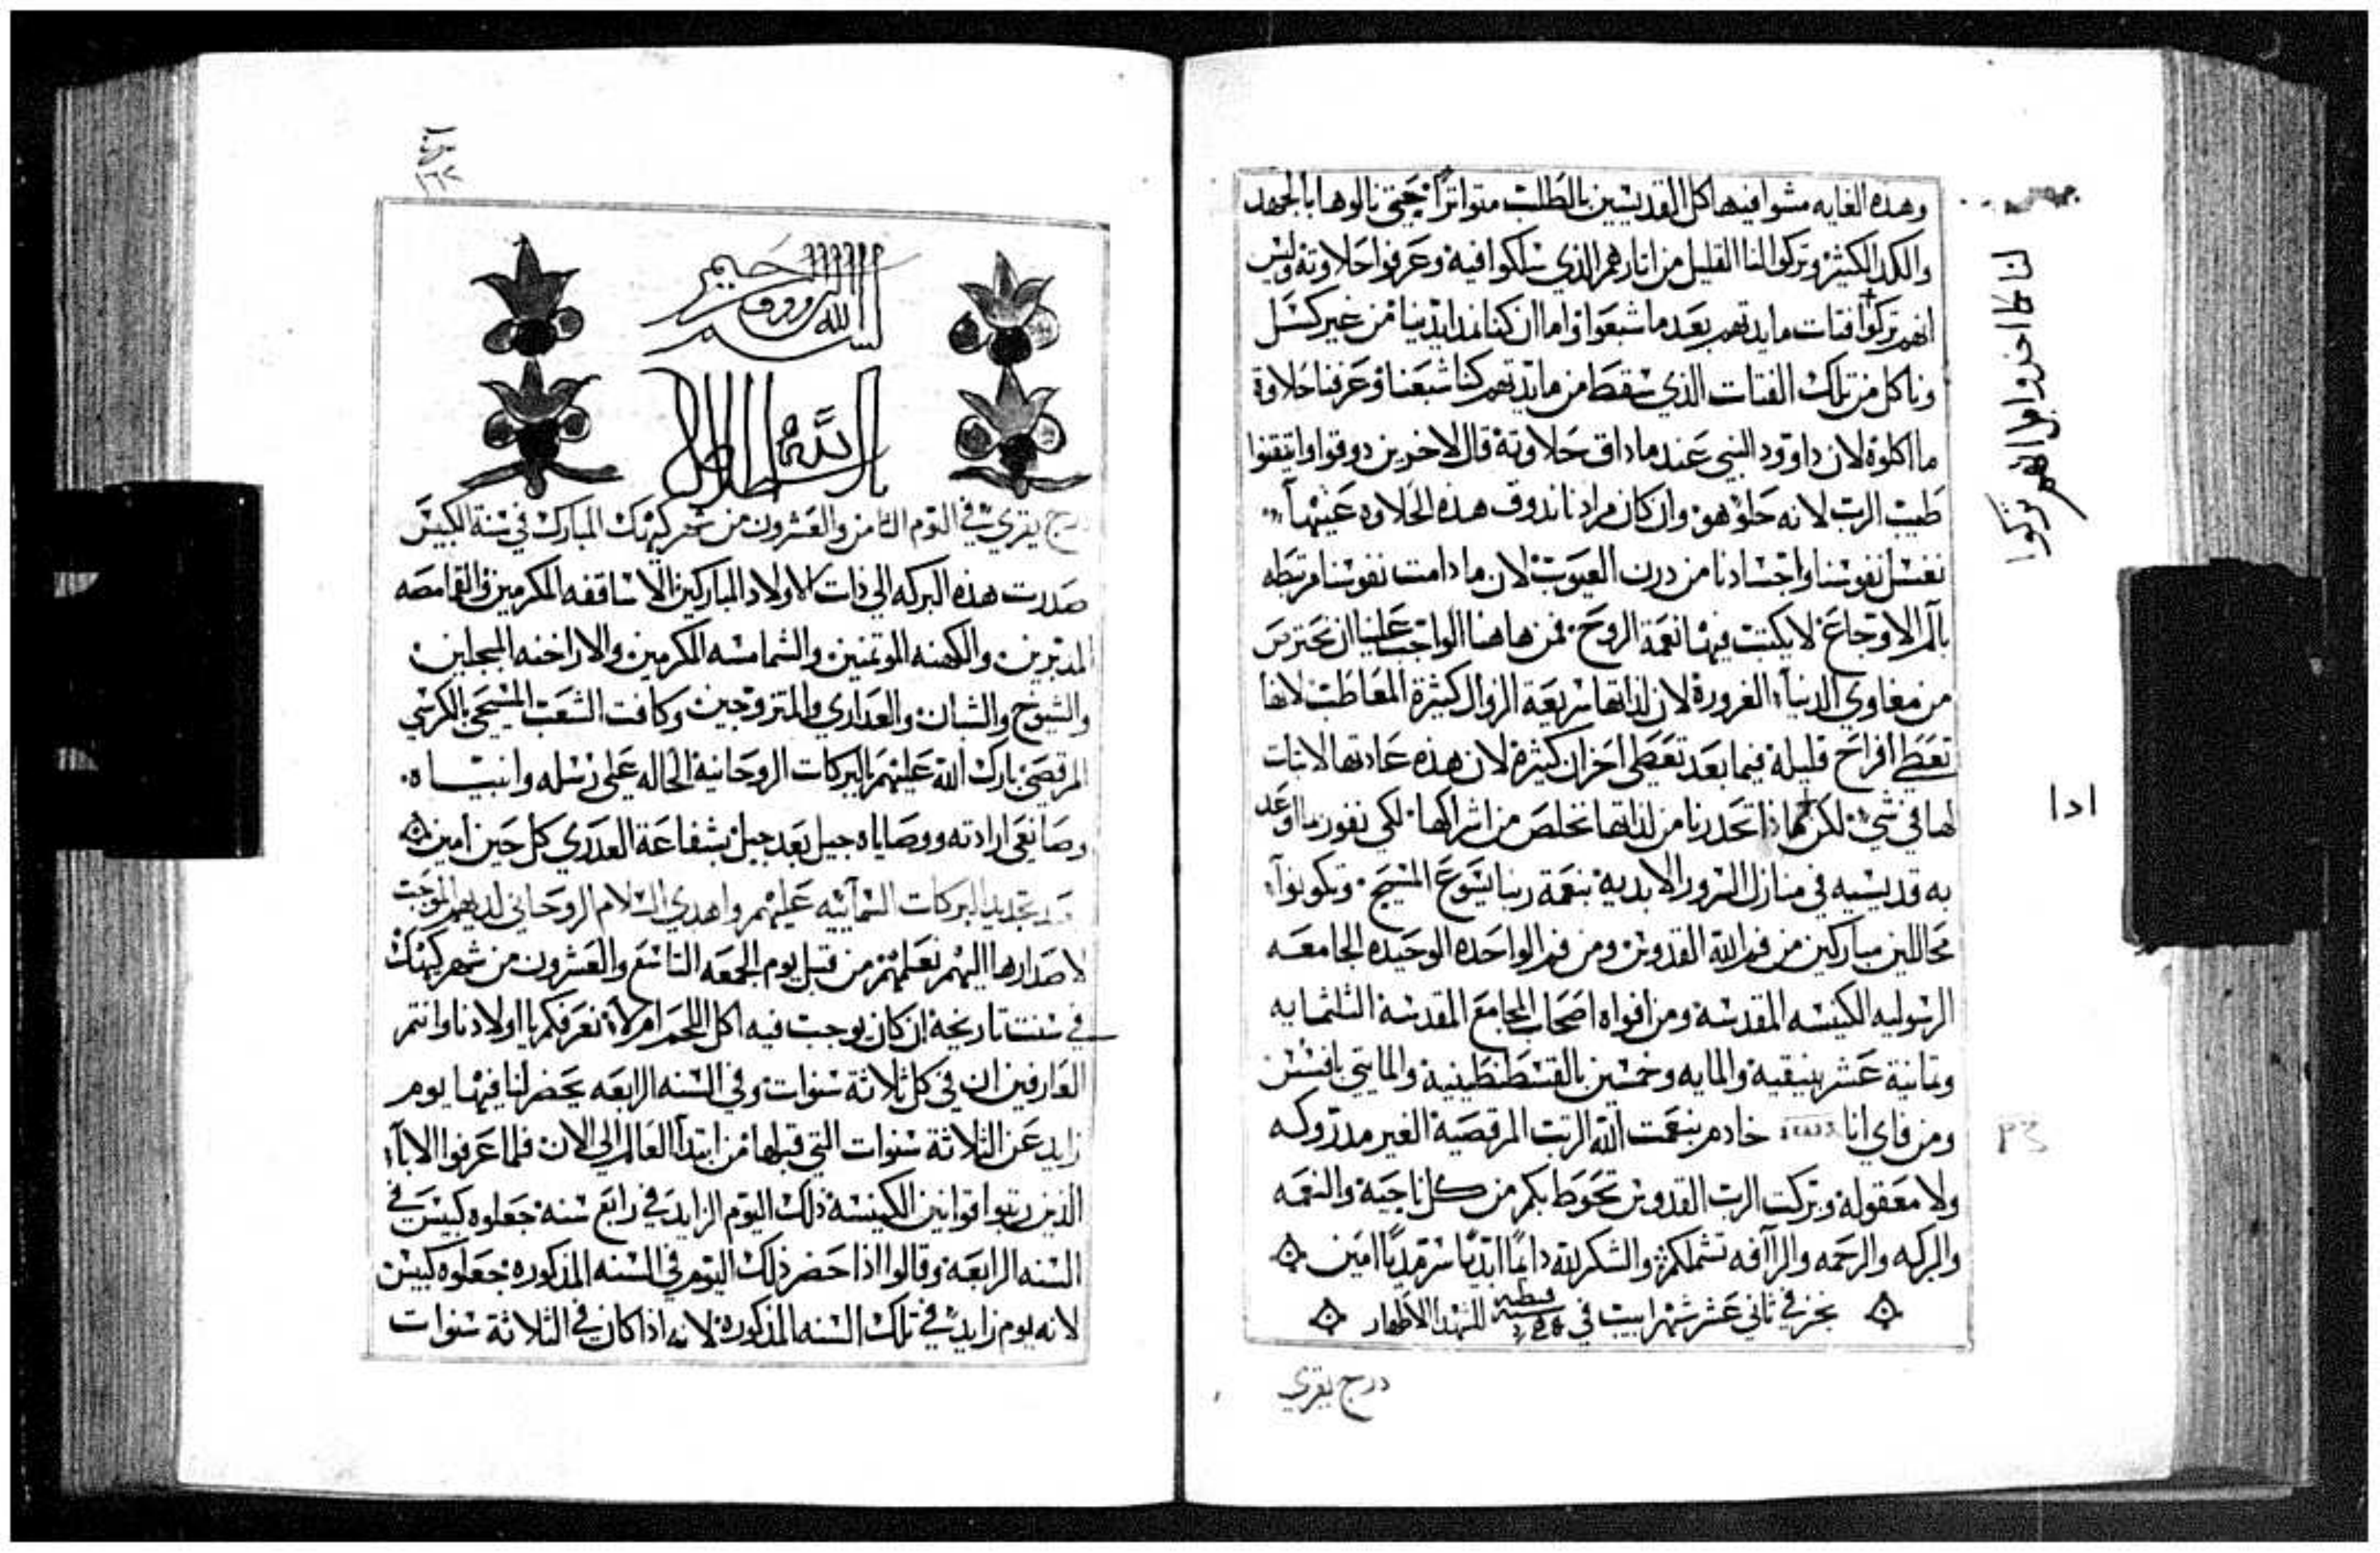 وهده الغايه مشوا فيها كل القديسين بالطلب متواتراً حتى نالوها بالجهد
والكد الكثير وتركوا لنا القليل من اتارهم الذي سلكوا فيه وعرفوا حلاوته وليس
انهم تركوا فتات مايدتهم بعد ما شبعوا واما ان كنا من غير كسل
وناكل من تلك الفتات الذي سقط من مايدتهم كنا شبعنا وعرفنا حلاوة
ما اكلوه لان داوود النبي عندما داق حلاوته قال لاخرين دوقوا واتيقنوا
طيب الرب لانه حلو هو وان كان مرادنا ندوق هذه الحلاوه عينها
نغسل نفوسنا واجسادنا من درن العيوب لان ما دامت نفوسنا مرتبطه
بآلم الاوجاع لا يكتب فيها نعمة الروح فمن هاهنا الواجب علينا ان نحترس
من مغاوي الدنيا الغرورة لان لذاتها سريعة الزوال كثيرة المعاطب لانها
تعطي افراح قليلة فيما بعد تعطي احزان كثيرة لان هذه عادتها لا تبات
لها في شي لكن اذا تحدرنا من لذاتها نخلص من اشراكها لكي نفوز بما اوعد
به قديسيه في منازل السرور الابدية بنعمة ربنا يسوع المسيح وتكونوا
محاللين مباركين من فم الله القدوس ومن فم الواحده الوحيده الجامعه
الرسوليه الكنيسه المقدسة ومن افواه اصحاب المجامع المقدسة التلتمايه
وتمانية عشر بنيقية والمايه وخمسين بالقسطنطينية والمايتي بافسس
ومن فاي انا خادم بنعمت الله الرتب المرقصية الغير مدروكه
ولا معقولة وبركت الرب القدوس تحوط بكم من كل ناحية والنعمه
والبركه والرحمه والرآفه تشملكم والشكر لله دايماً ابدياً سرمدياً امين
نجز في تاني عشر شهر ابيب في سنة قبطيه للشهدا الاطهار
درج يقري
تركوا
ادا
بسم الله الرووف الرحيم
درج يقري في اليوم التامن والعشرون من شهر كيهك المبارك في سنة الكبيس
صدرت هذه البركه الى ذات الاولاد المباركين الاساقفه المكرمين والقمامصه
المدبرين والكهنه الموتمنين والشمامسه المكرمين والاراخنه المبجلين
والشيوخ والشبان والعداري والمتزوجين وكافت الشعب المسيحي بالكرسي
المرقصي بارك الله عليهم بالبركات الروحانية الحاله على رسله وانبياه
وصانعي ارادته ووصاياه جيل بعد جيل بشفاعة العدري كل حين امين
بعد تجديد البركات السمآييه عليهم واهدي السلام الروحاني لديهم الموجب
لاصدارها اليهم نعلمهم من قبل يوم الجمعه التاسع والعشرون من شهر كيهك
في سنت تاريخه ان كان يوجب فيه اكل اللحم ام لا نعرفكم يا اولادنا وانتم
العارفين ان في كل ثلاثة سنوات وفي السنه الرابعه يحضر لنا فيها يوم
زايد عن التلاثة سنوات التي قبلها من ابتدآ العالم الى الان فلما عرفوا الابآء
الذين رتبوا قوانين الكنيسة ذلك اليوم الزايد في رابع سنة جعلوه كبيس في
السنه الرابعة وقالوا اذا حضر ذلك اليوم في السنه المذكوره جعلوه كبيس
لانه يوم زايد في تلك السنه المذكورة لانه اذا كان في التلاثة سنوات